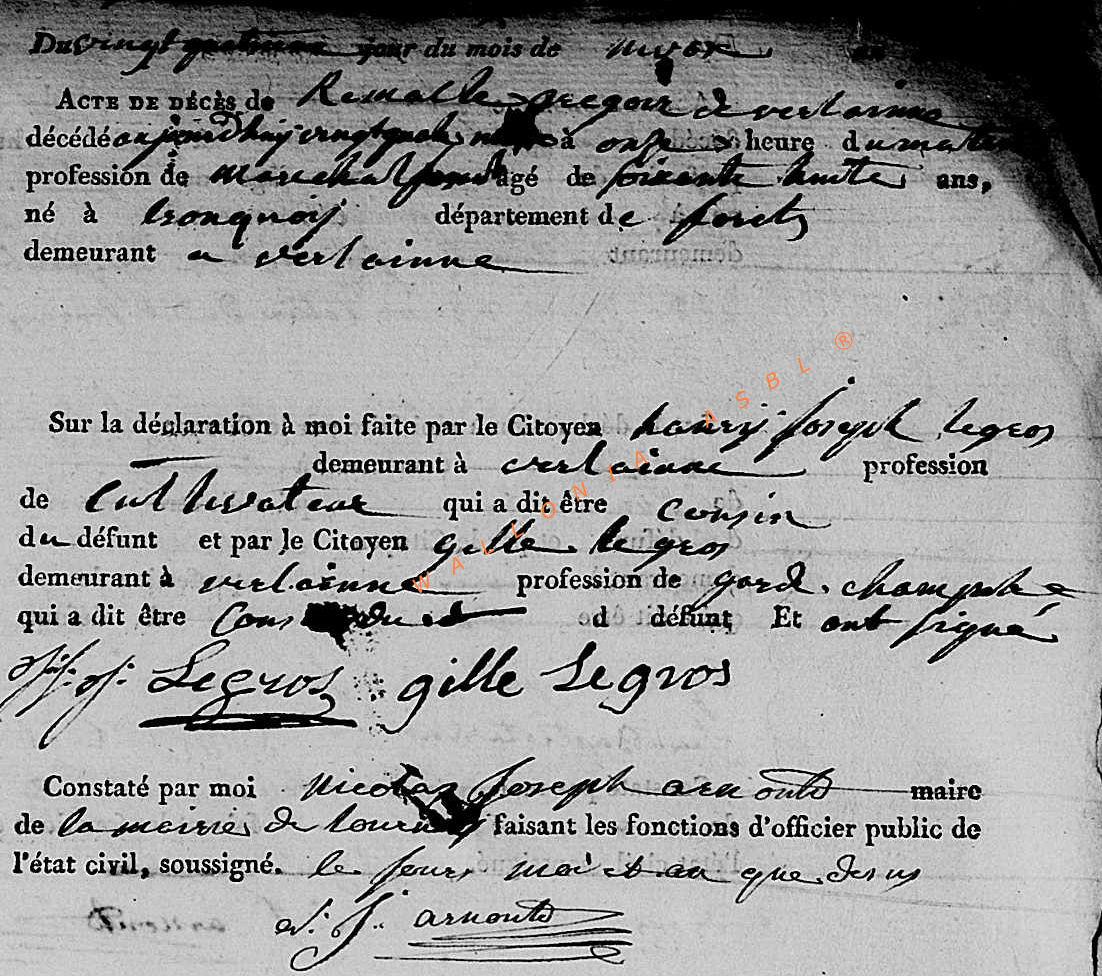 Du vingt quatrieme jour du mois de nivose an
ACTE DE DÉCÈS de Remalle gregoir de verlainne
décédé aujourdhuij vingt quatre à onze heure du matin
profession de marechal ferand agé de soixante huite ans,
né à tronquoij département de forets
demeurant a verlainne
Sur la déclaration à moi faite par le Citoyen hanrij joseph legros
demeurant à verlainne profession
de cultivateur qui a dit être cousin
du défunt et par le Citoyen gille legros
demeurant à verlainne profession de gard champetre
qui a dit être cousin du d défunt Et ont signé
h: j: Legros gille Legros
Constaté par moi nicolas joseph arnould maire
de la mairie de tournay faisant les fonctions d'officier public de
l'état civil, soussigné. le jour moi et an que desus
n: j: arnould
WALLONIA ASBL ®